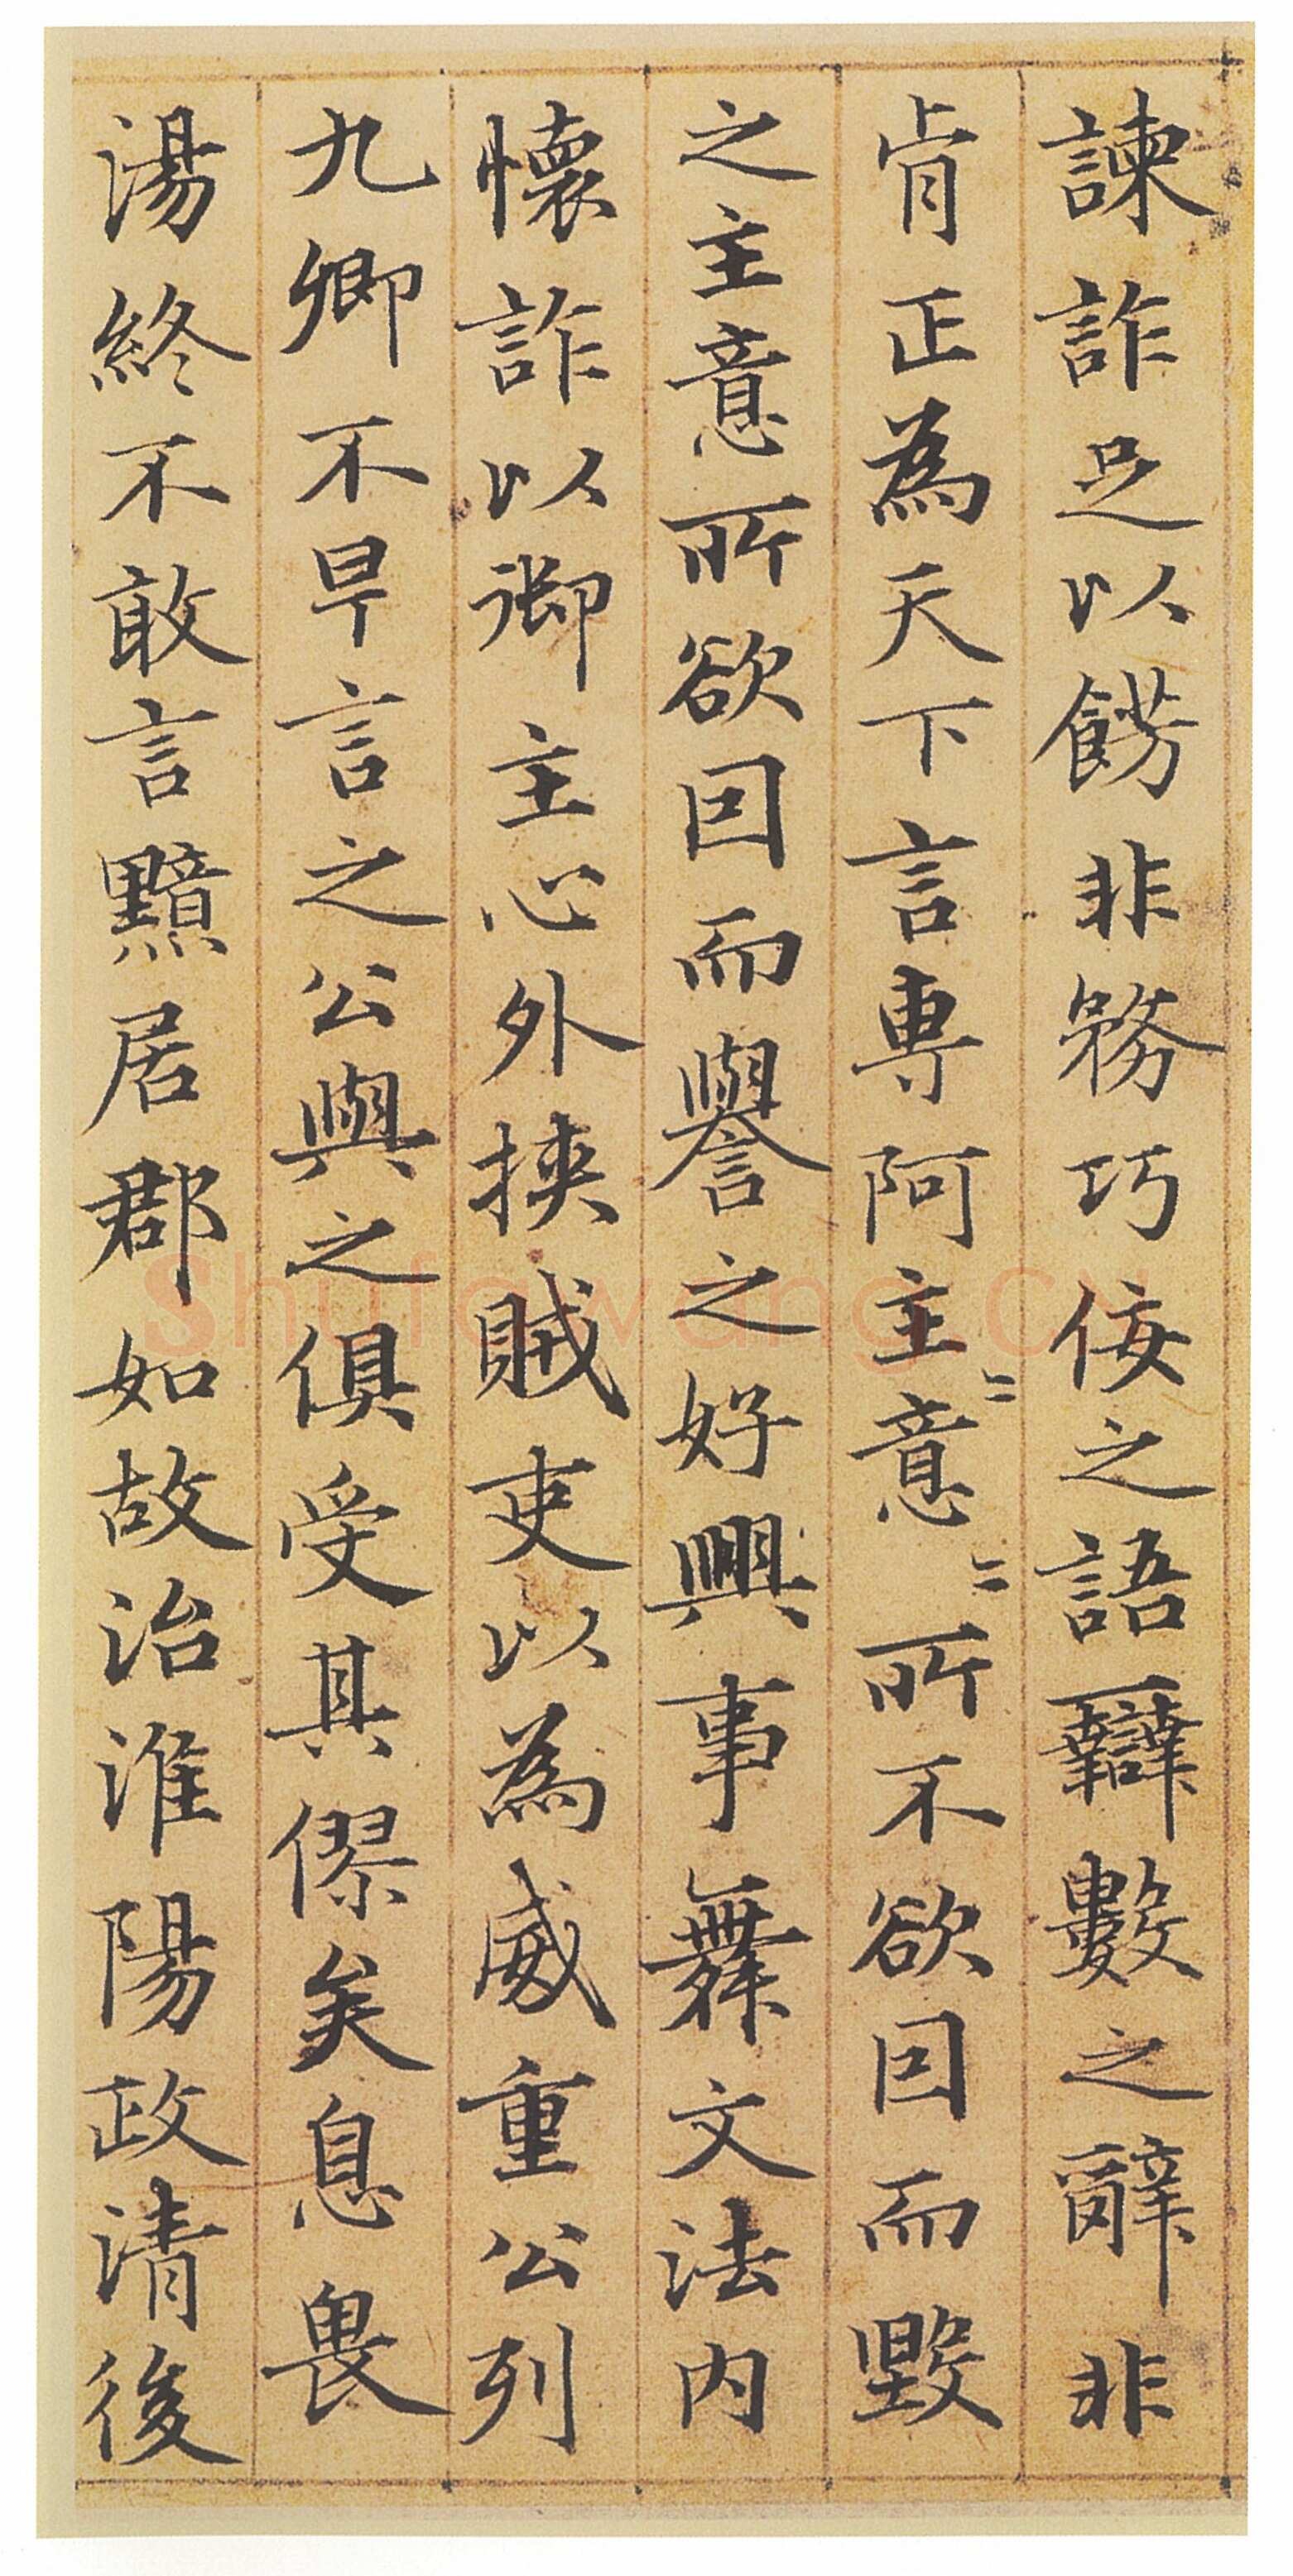 諫詐足以餝非務巧佞之語辯數之辭非
肯正為天下言專阿主意〻所不欲因而毀
之主意所欲因而譽之好興事舞文法內
懷詐以御主心外挾賊吏以為威重公列
九卿不早言之公與之俱受其僇矣息畏
湯終不敢言黯居郡如故治淮陽政清後
shufawang.CN